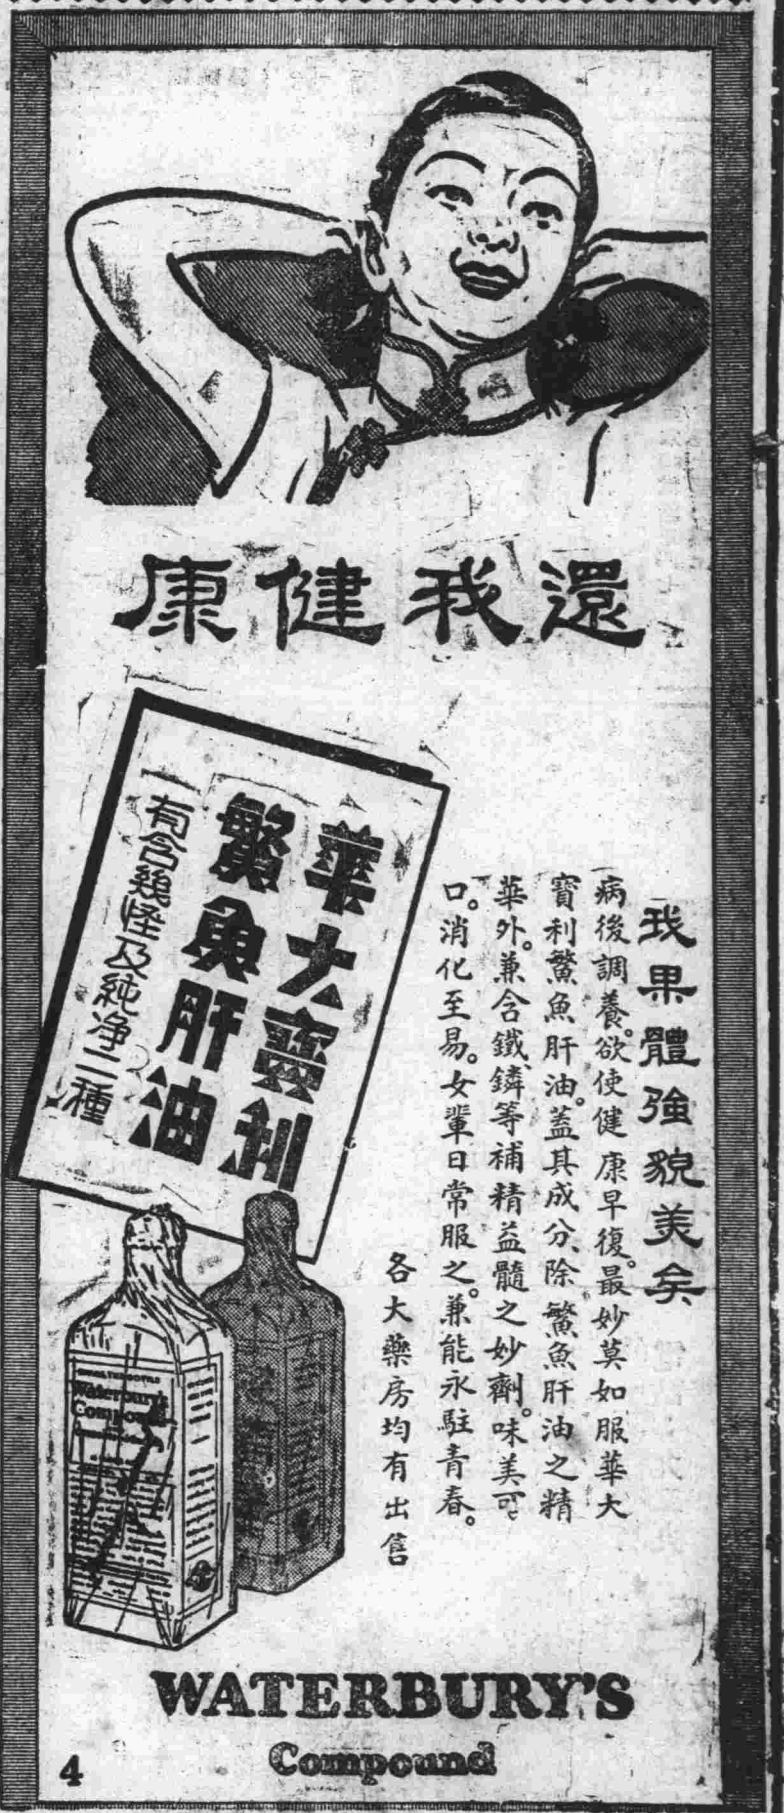 還我健康
我果體強貌美矣
病後調養。欲使健康早復。最妙莫如服華大
寶利鰵魚肝油。蓋其成分、除鰵魚肝油之精
華外。兼含鐵、鏻等補精益髓之妙劑。味美可
口。消化至易。女輩日常服之。兼能永駐青春。
各大藥房均有出售
華大寶利
鰵魚肝油
有含幾怪及純净二種
Waterbury's
Compound
WATERBURY'S
Compound
4